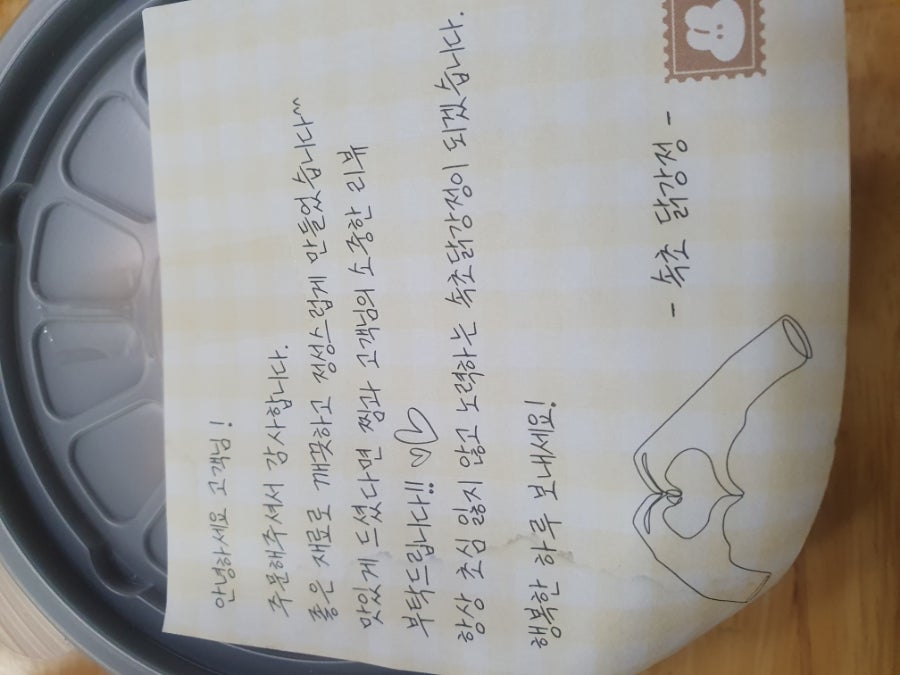 안녕하세요 고객님!
주문해주셔서 감사합니다.
좋은 재료로 깨끗하고 정성스럽게 만들었습니다^^
맛있게 드셨다면 찜과 고객님의 소중한 리뷰
부탁드립니다!! ♡♡
항상 초심 잃지 않고 노력하는 속초닭강정이 되겠습니다.
행복한 하루 보내세요!
- 속초 닭강정 -